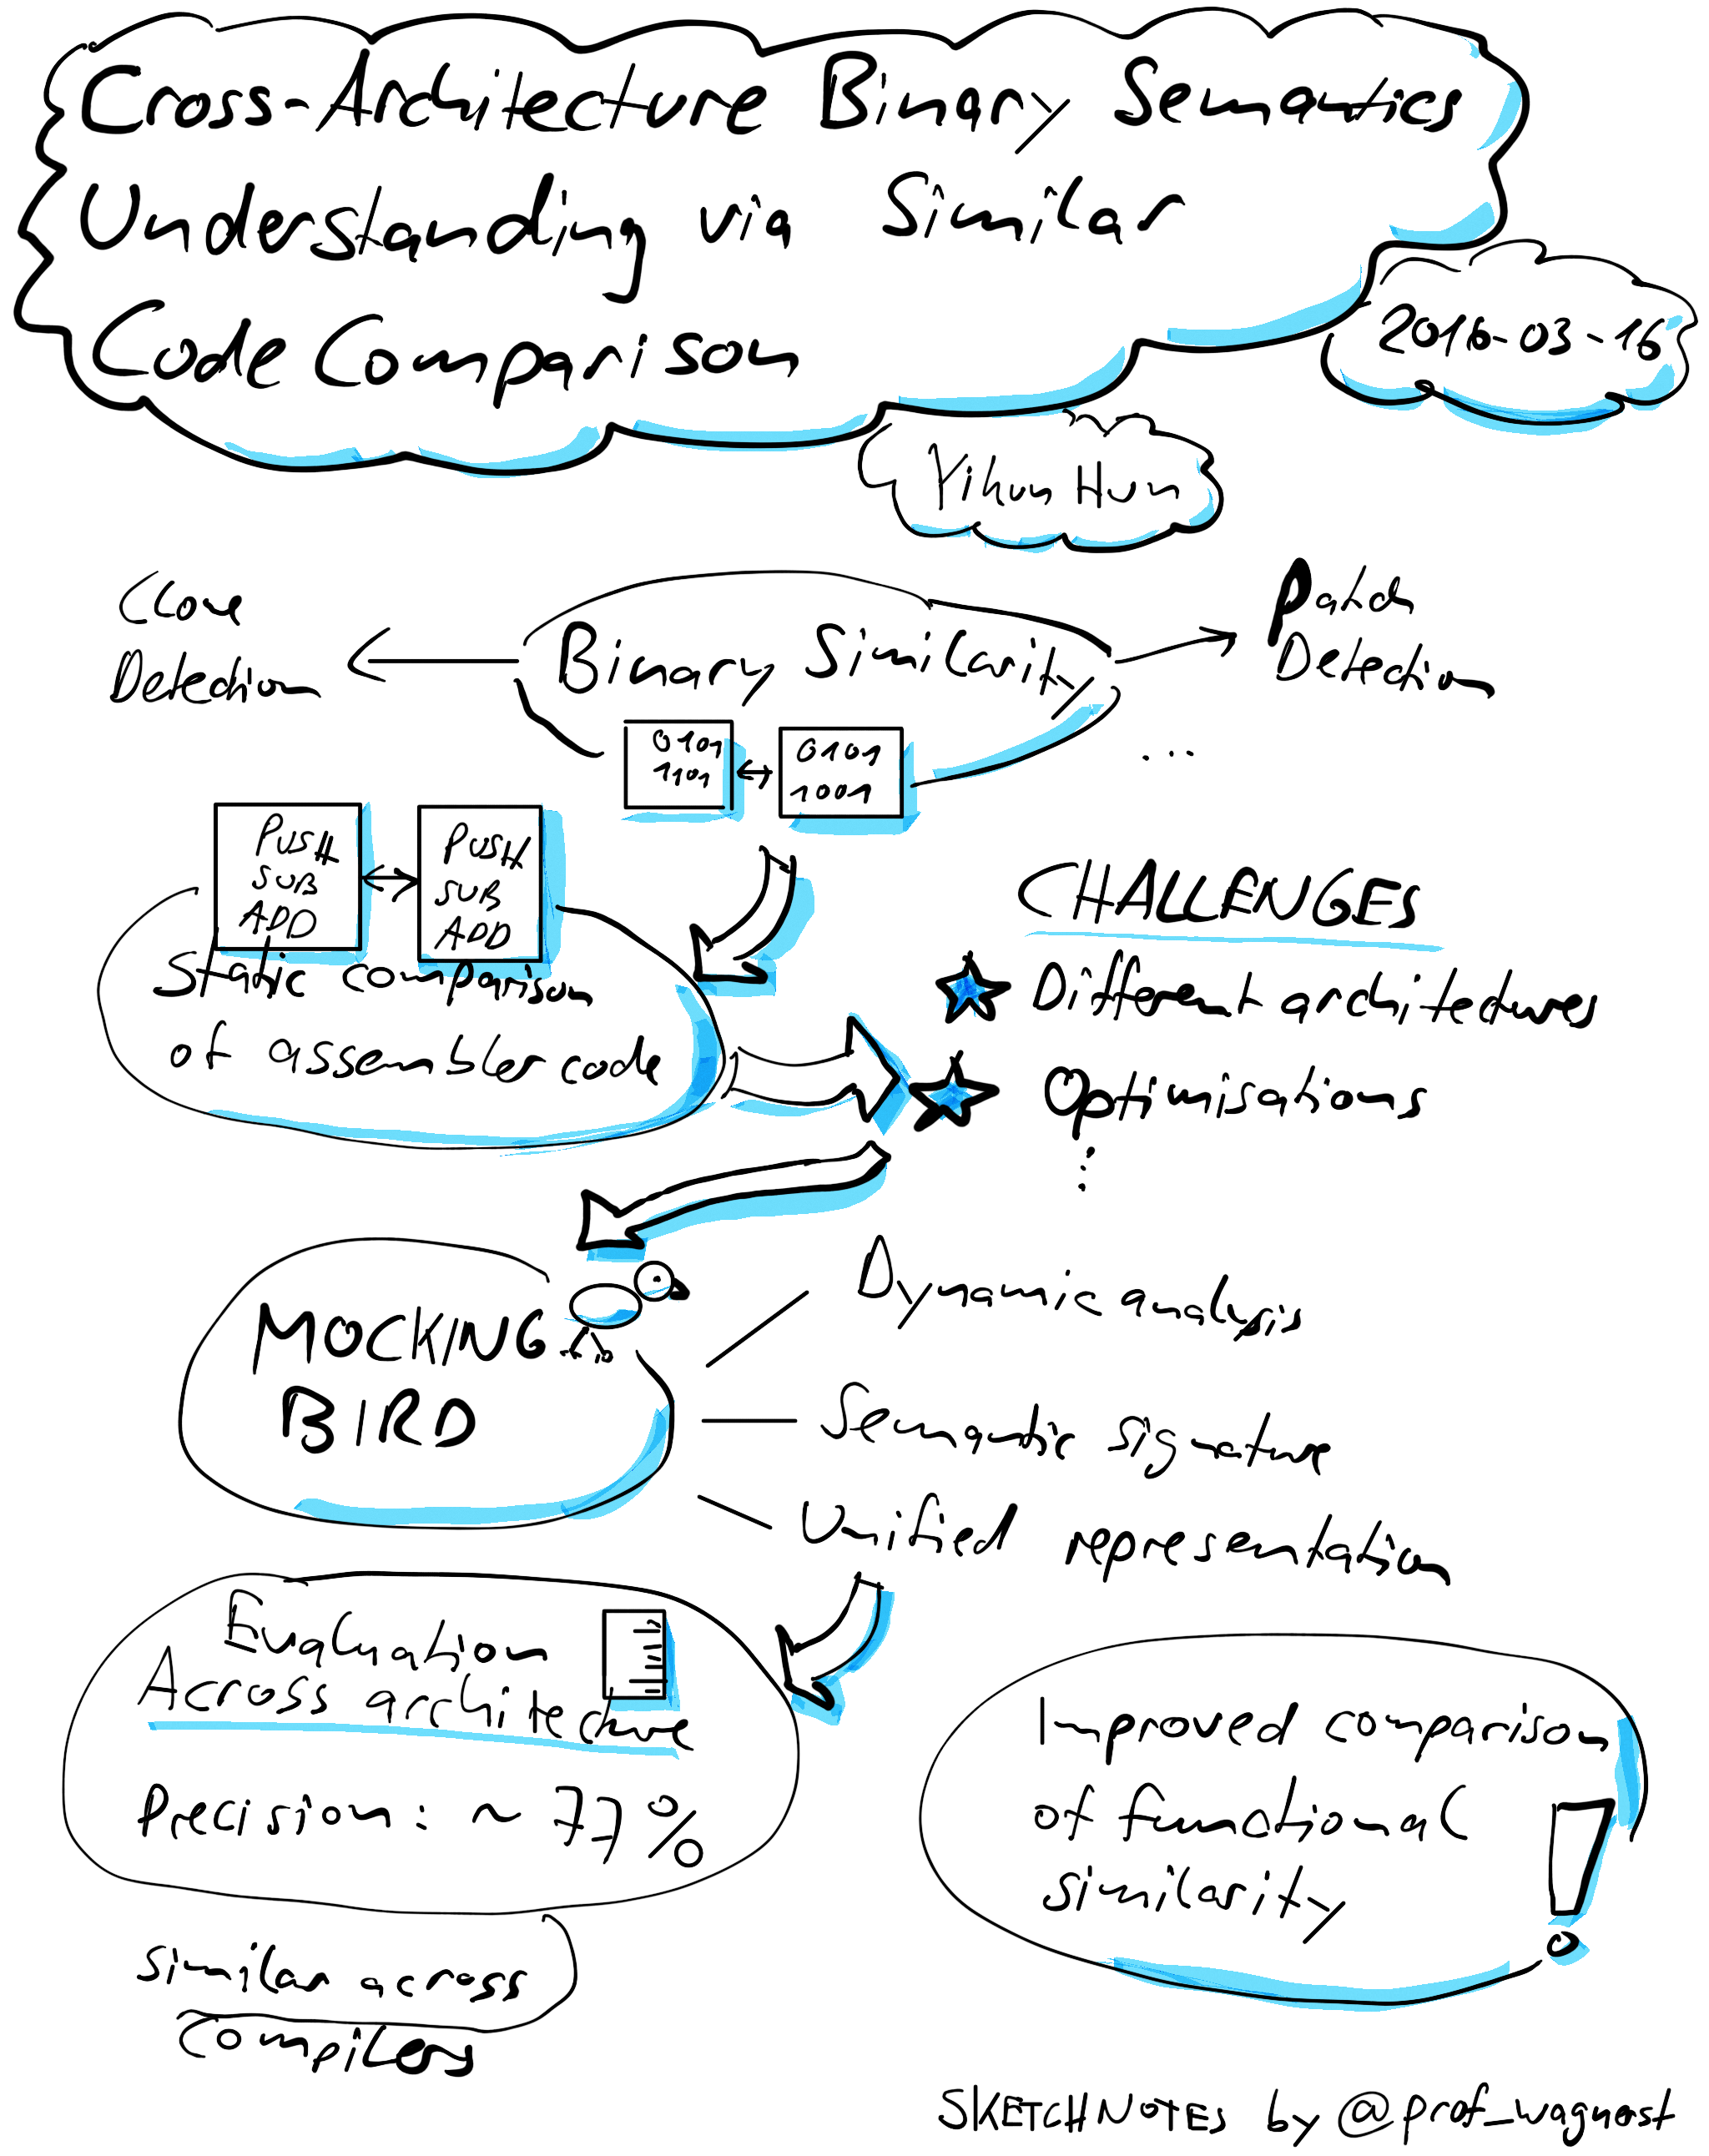 Cross-Architecture Binary Semantics
Understanding via Similar
Code Comparison
2016-03-16
Yikun Hun
Clone
Detection
Binary Similarity
Patch
Detection
0101
1101
0101
1001
...
PUSH
SUB
ADD
PUSH
SUB
ADD
Static comparison
of assembler code
CHALLENGES
Different architectures
Optimisations
...
MOCKING
BIRD
Dynamic analysis
Semantic signature
Unified representation
Evaluation
Across architecture
Precision: ~ 77%
similar across
compilers
Improved comparison
of functional
similarity
!
SKETCHNOTES by @prof_wagnerst